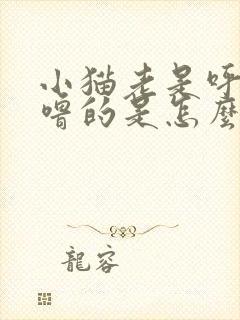 小猫老是呼
噜的是怎麼
龍容